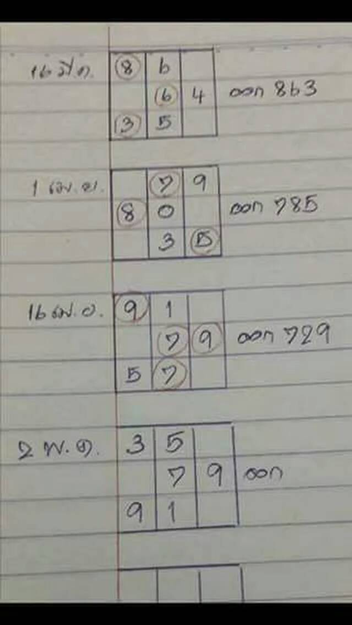 8 6
16 มี.ค. 6 4 ออก 863
3 5
7 9
1 เม.ย. 8 0 ออก 785
3 5
16 เม.ย. 9 1
7 9 ออก 729
5 7
2 พ.ค. 3 5
7 9 ออก
9 1